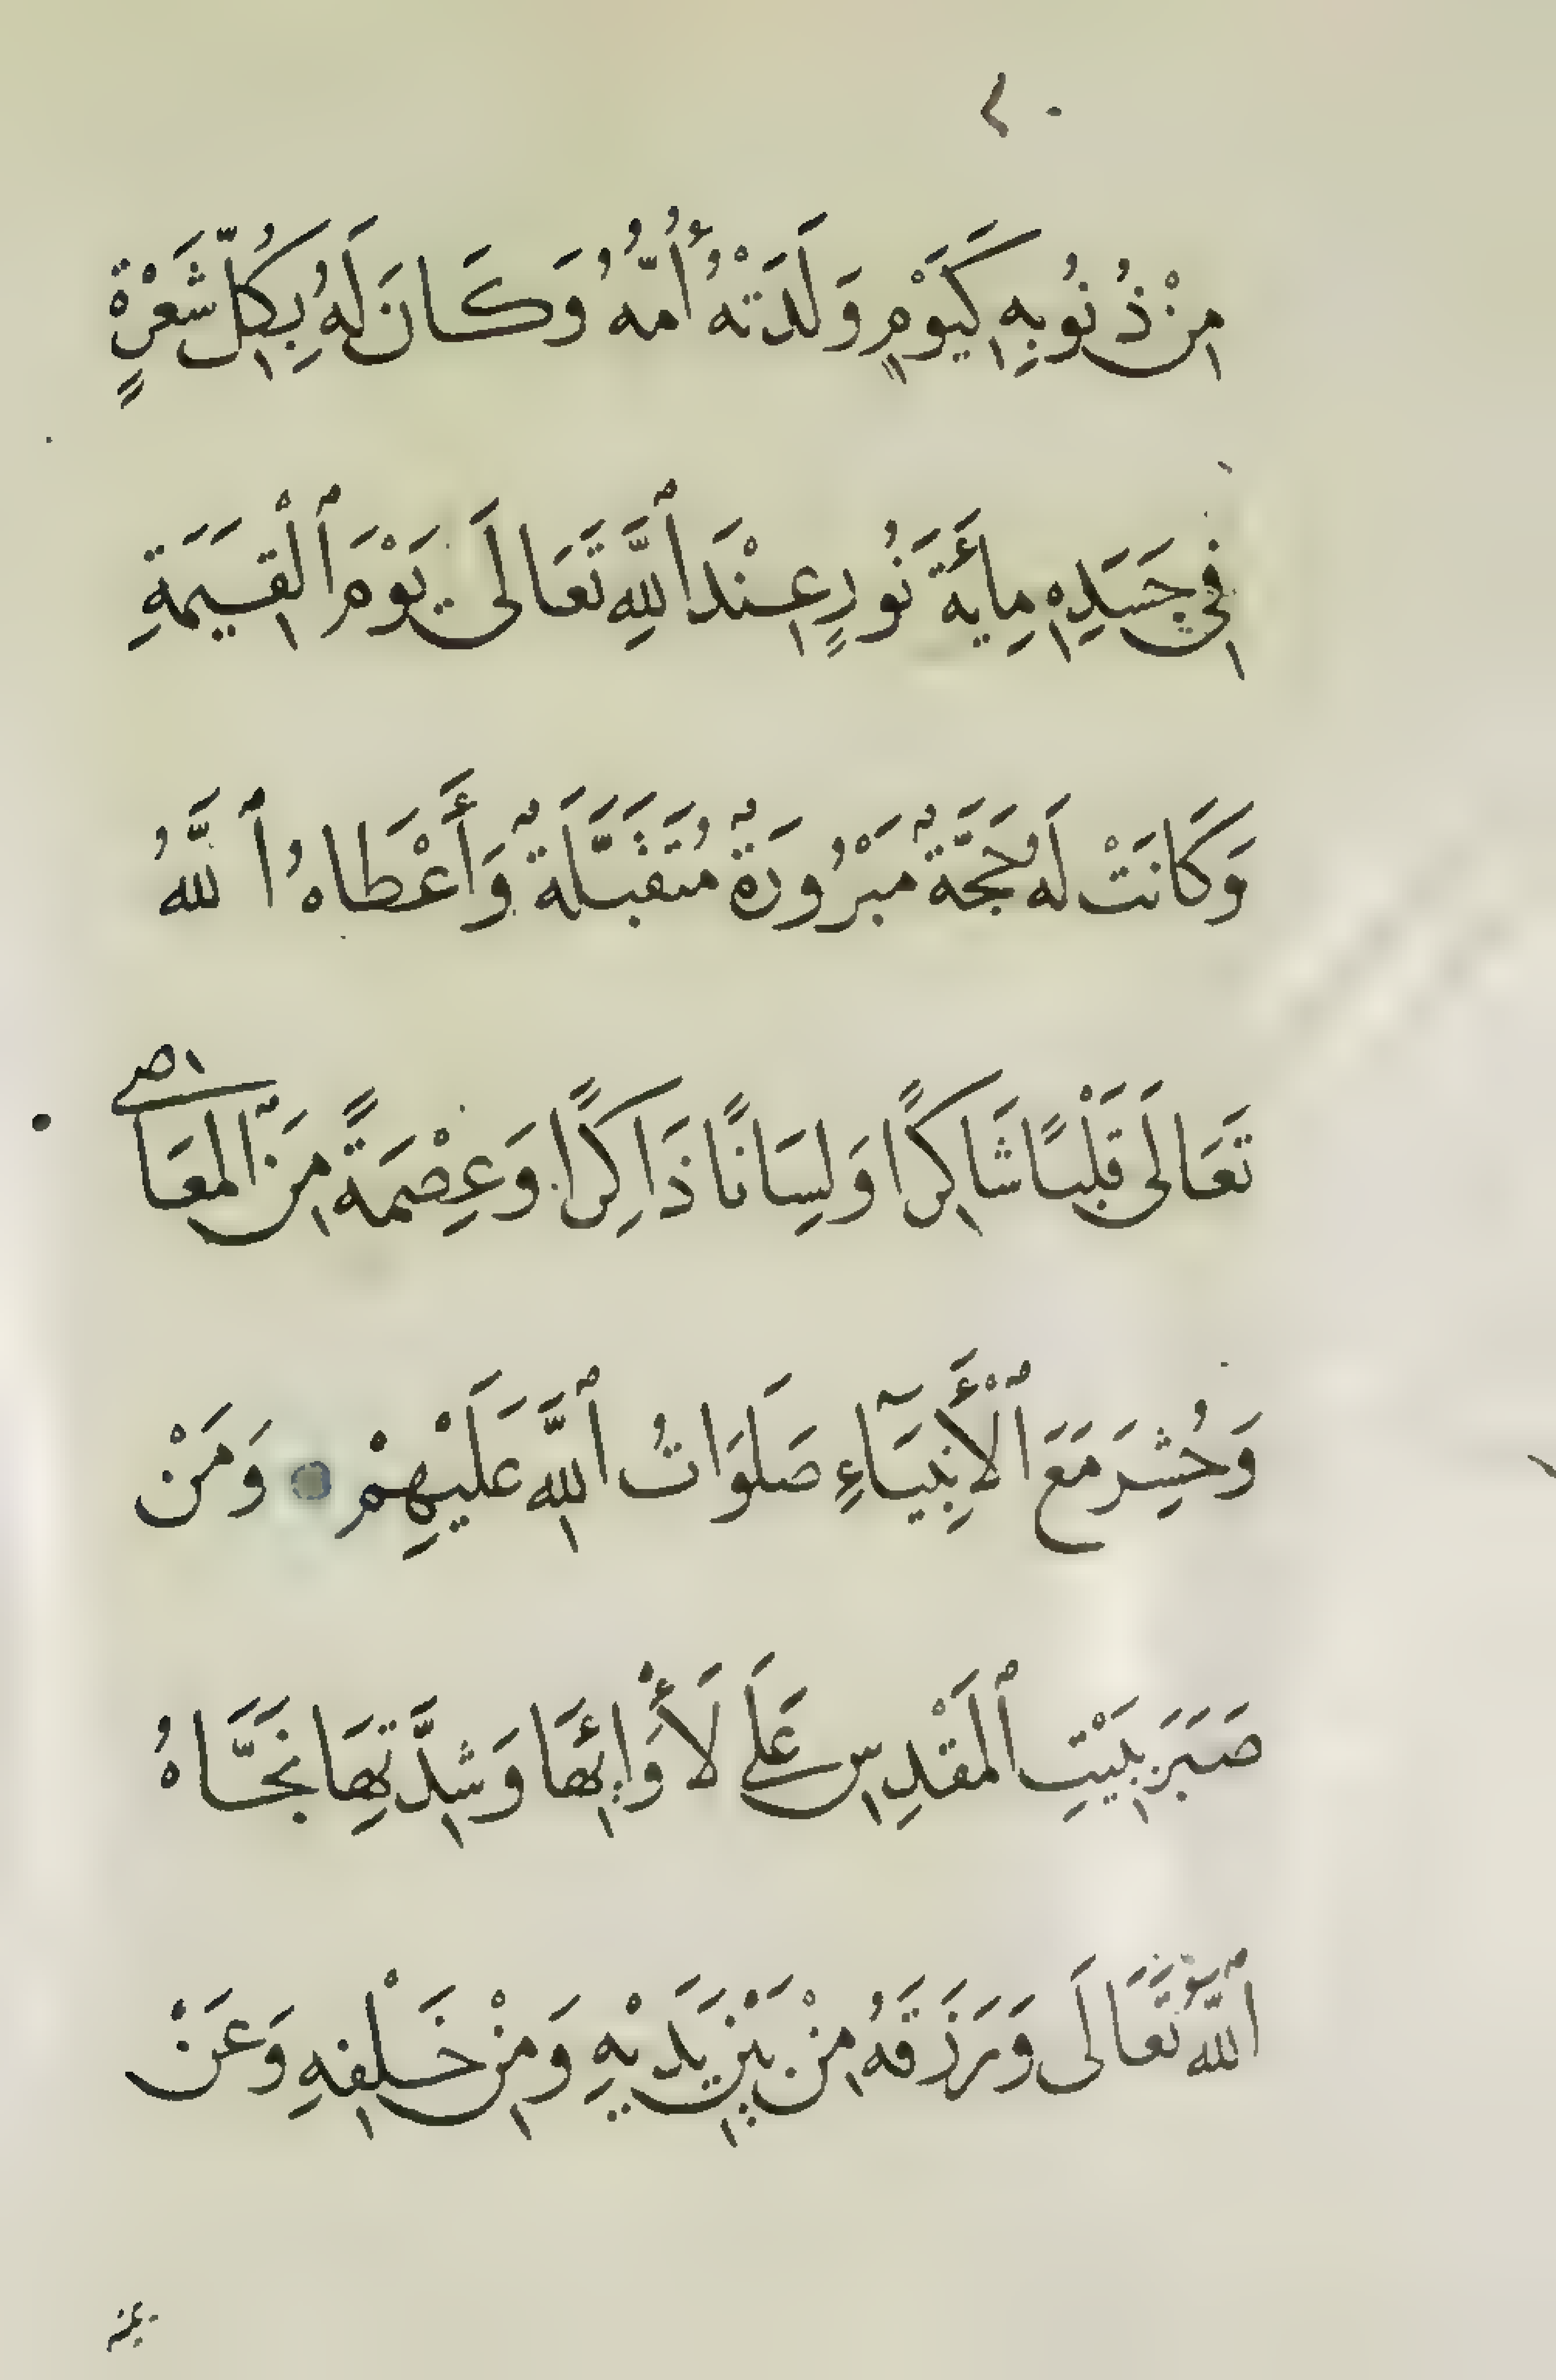 مِنْ ذُنُوبِهِ كَيَوْمٍ وَلَدَتْهُ أُمُّهُ وَكَانَ لَهُ بِكُلِّ شَعْرَةٍ
فِي جَسَدِهِ مِايَةَ نُورٍ عِنْدَ ٱللَّهِ تَعَالَى يَوْمَ ٱلْقِيَمَةِ
وَكَانَتْ لَهُ حَجَّةٌ مَبْرُورَةٌ مُتَقَبَّلَةٌ وَأَعْطَاهُ ٱللَّهُ
تَعَالَى قَلْبًا شَاكِرًا وَلِسَانًا ذَاكِرًا وَعِصْمَةً مِنَ ٱلمَعَاصِي
وَحُشِرَ مَعَ ٱلْأَنْبِيَآءِ صَلَوَاتُ ٱللَّهِ عَلَيْهِمْ وَمَنْ
صَبَرَ بِبَيْتِ ٱلمَقْدِسِ عَلَى لَأْوَائِهَا وَشِدَّتِهَا نَجَّاهُ
ٱللَّهُ تَعَالَى وَرَزَقَهُ مِنْ بَيْنِ يَدَيْهِ وَمِنْ خَلْفِهِ وَعَنْ